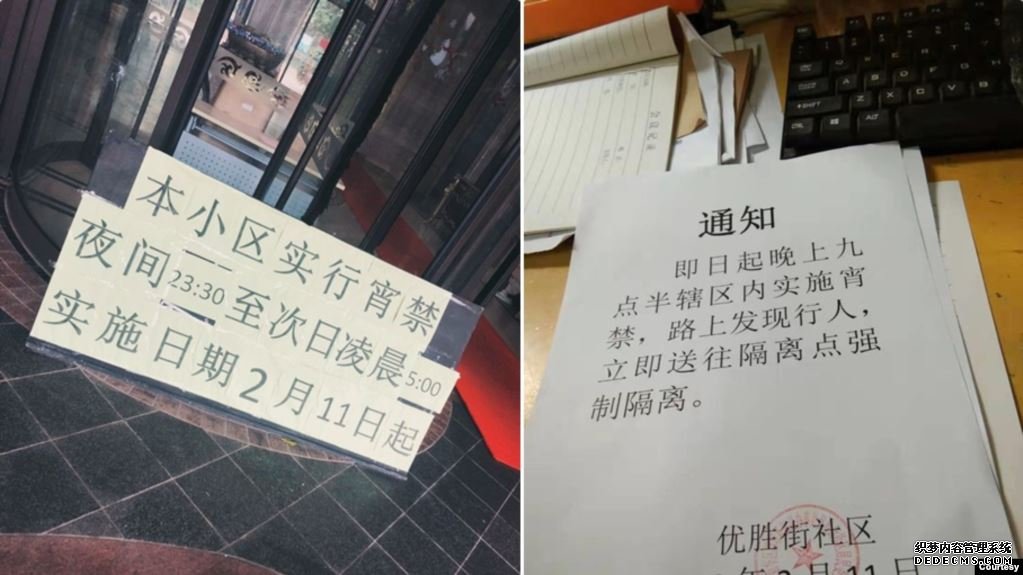 本小区实行宵禁
夜间23:30至次日凌晨5:00
实施日期2月11日起
会议记录
SHIFT
ALT
通知
即日起晚上九
点半辖区内实施宵
禁，路上发现行人，
立即送往隔离点强
制隔离。
优胜街社区
月11日
织梦内容管理系统
DEDECMS.COM
Courtesy